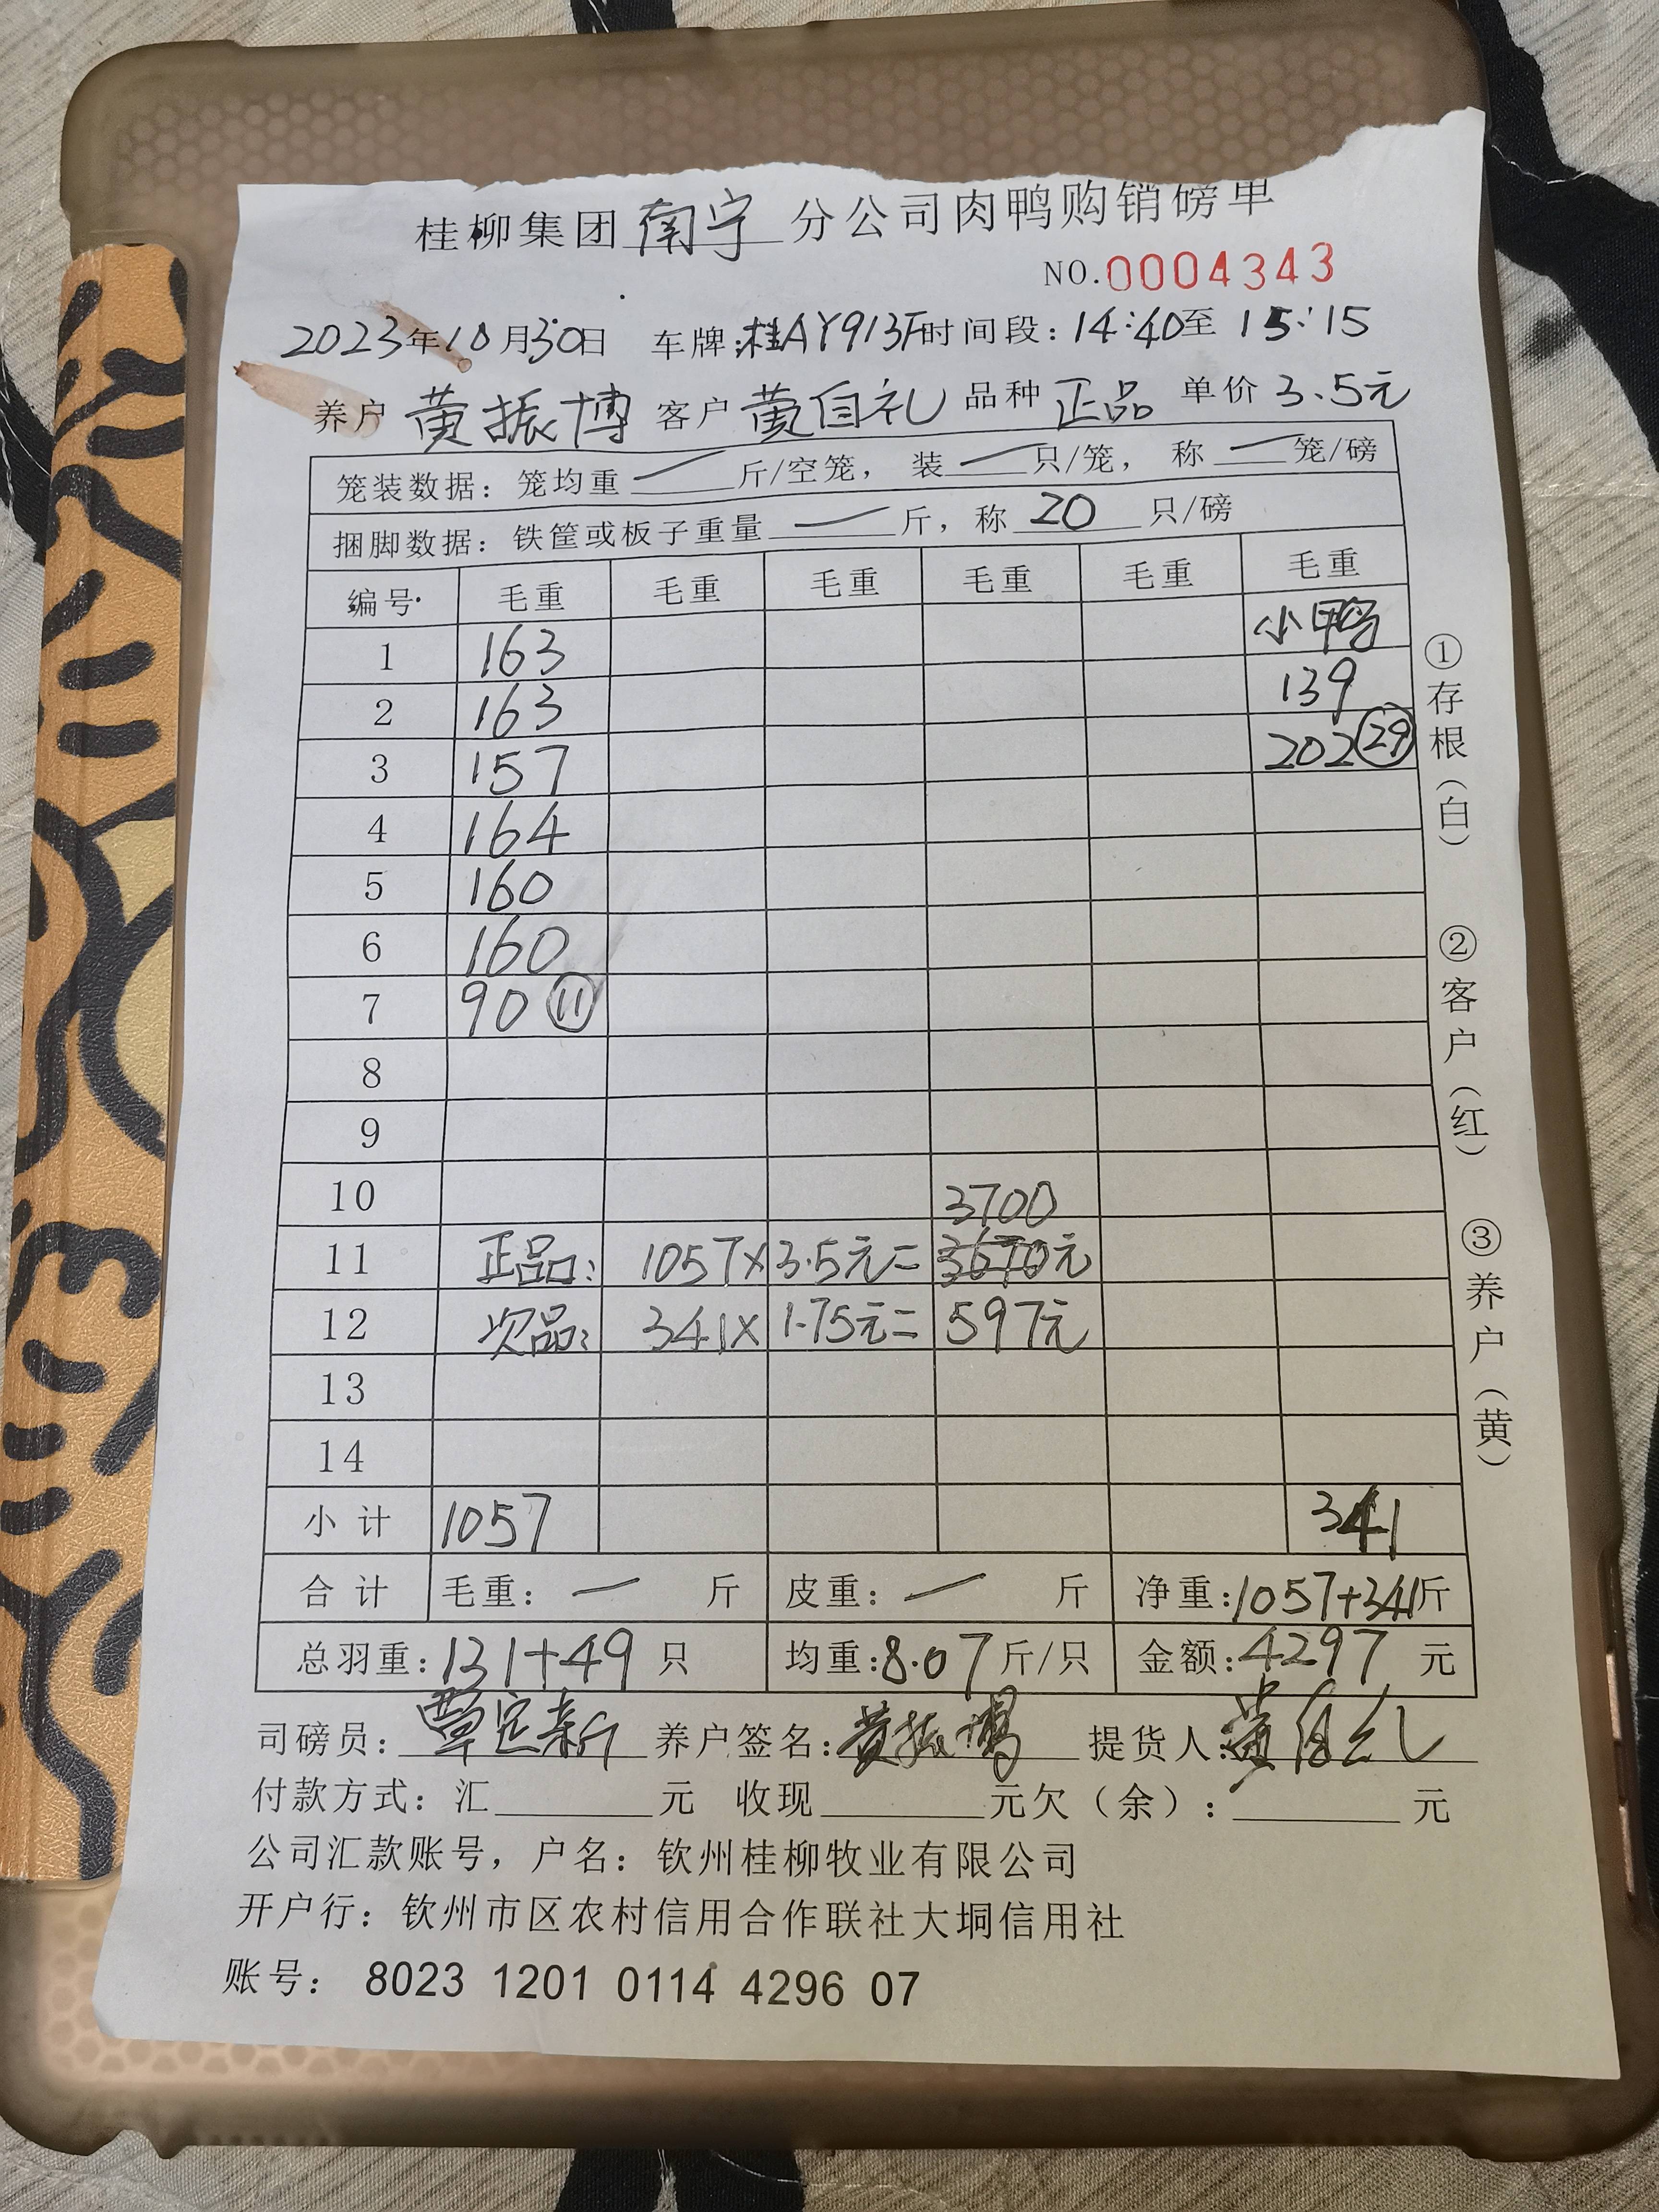 桂柳集团南宁分公司肉鸭购销磅单
NO.0004343
2023年10月30日 车牌:桂AY913F时间段:14:40至15:15
养户 黄振博 客户 黄自礼 品种 正品 单价 3.5元
笼装数据:笼均重 一 斤/空笼,装 一 只/笼,称 一 笼/磅
捆脚数据:铁筐或板子重量 一 斤,称 20 只/磅
编号 毛重 毛重 毛重 毛重 毛重 毛重
1 163 小鸭
2 163 139
3 157 202 ㉙
4 164
5 160
6 160
7 90 ⑪
8
9
10 3700
11 正品: 1057×3.5元=3670元
12 次品: 341×1.75元=597元
13
14
小计 1057 341
合计 毛重: 一 斤 皮重: 一 斤 净重:1057+341斤
总羽重:131+49 只 均重:8.07斤/只 金额:4297 元
司磅员:覃定新 养户签名:黄振博 提货人:黄自礼
付款方式:汇______元 收现______元欠(余):______元
公司汇款账号,户名:钦州桂柳牧业有限公司
开户行:钦州市区农村信用合作联社大垌信用社
账号: 8023 1201 0114 4296 07
①存根(白) ②客户(红) ③养户(黄)